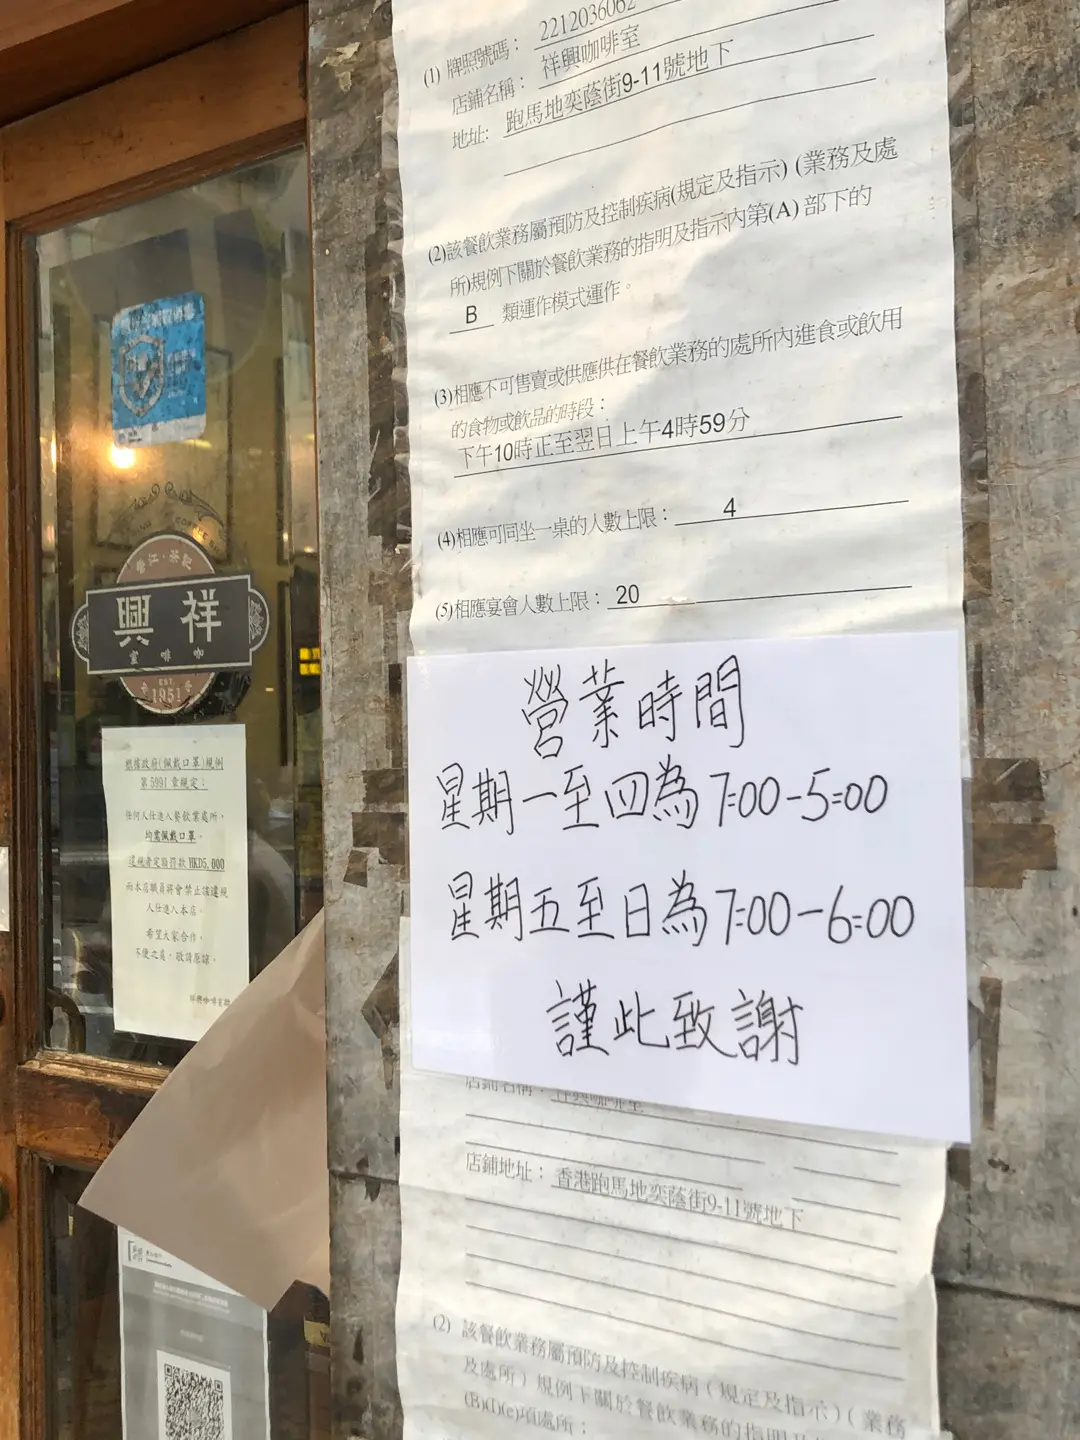 (1) 牌照號碼： 2212036062
店鋪名稱： 祥興咖啡室
地址: 跑馬地奕蔭街9-11號地下
(2)該餐飲業務屬預防及控制疾病(規定及指示) (業務及處
所)規例下關於餐飲業務的指明及指示內第(A) 部下的
B 類運作模式運作。
(3)相應不可售賣或供應供在餐飲業務的處所內進食或飲用
的食物或飲品的時段：
下午10時正至翌日上午4時59分
(4)相應可同坐一桌的人數上限： 4
(5)相應宴會人數上限： 20
營業時間
星期一至四為7:00-5:00
星期五至日為7:00-6:00
謹此致謝
店鋪名稱： 祥興咖啡室
店鋪地址： 香港跑馬地奕蔭街9-11號地下
(2) 該餐飲業務屬預防及控制疾病（規定及指示）（業務
及處所）規例下關於餐飲業務的指明及
(B)(I)(e)項處所；
香江·茶記
興祥
室啡咖
EST.
1951
根據政府(佩戴口罩)規例
第 599I 章規定：
任何人仕進入餐飲業處所，
均需佩戴口罩。
違規者定額罰款 HKD5,000
而本店職員將會禁止該違規
人仕進入本店。
希望大家合作，
不便之處，敬請原諒。
祥興咖啡室啟